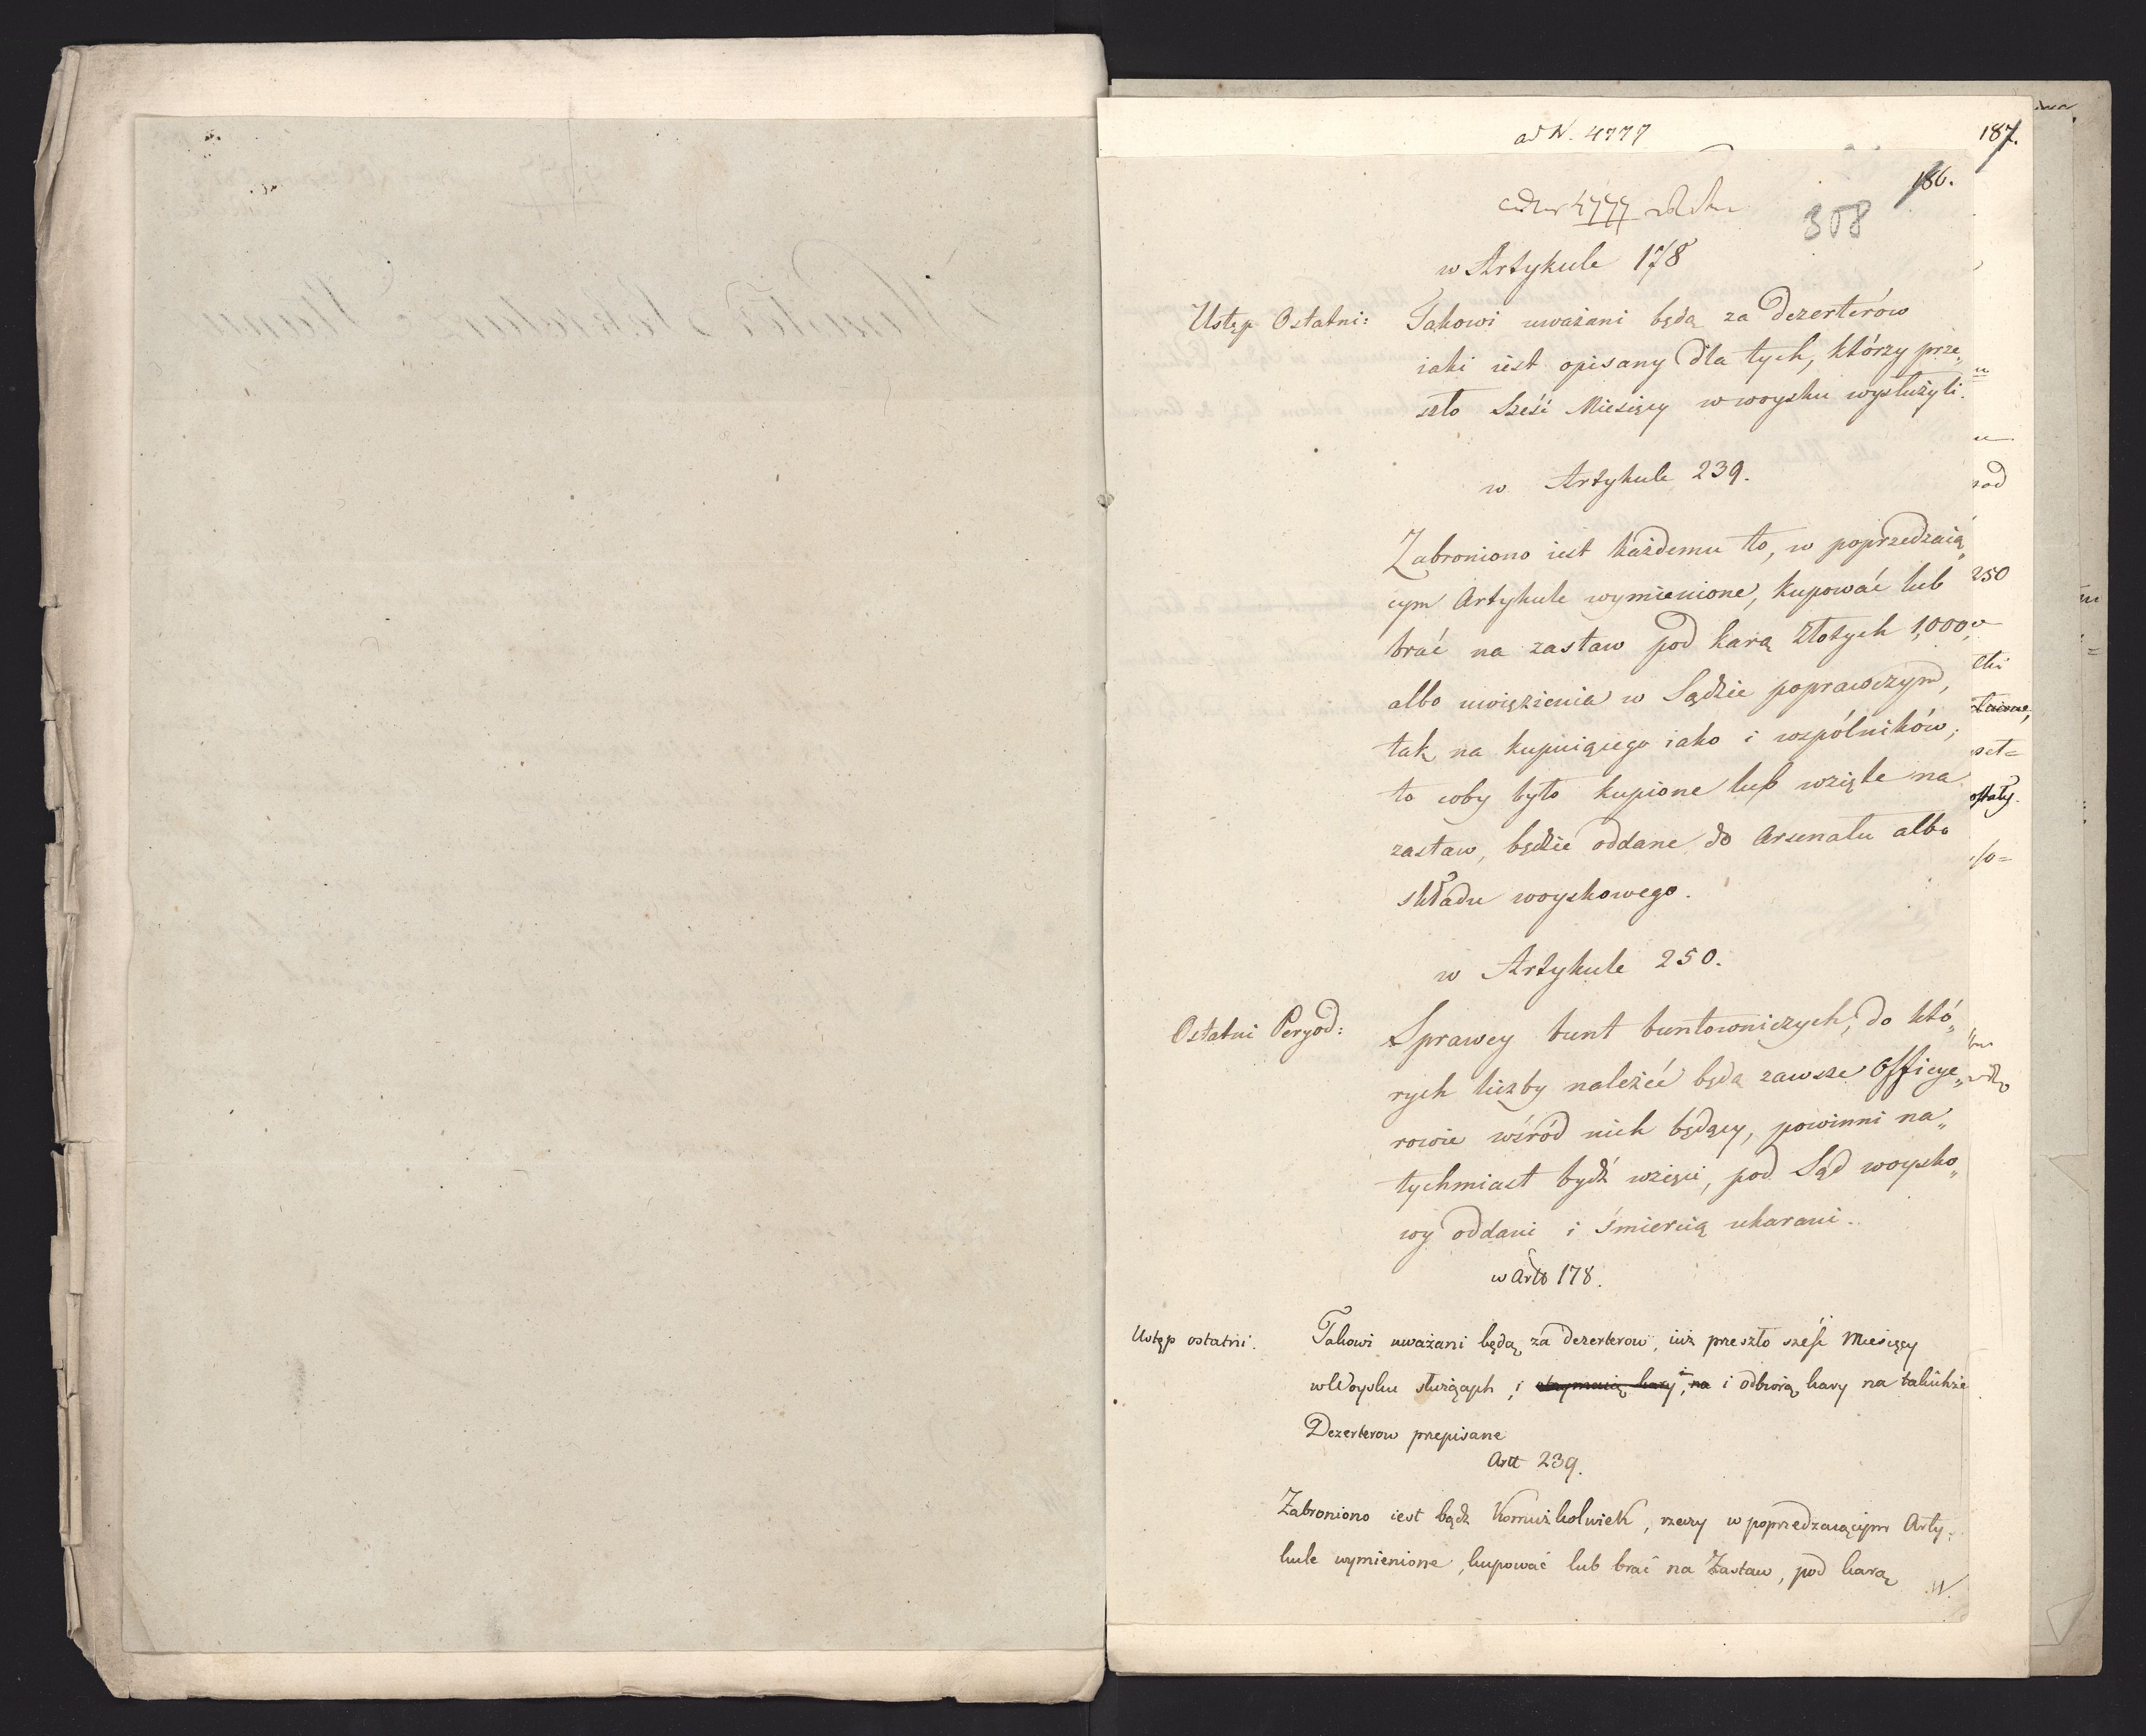 ad N. 4777
187.
186.
4777
308
w Artykule 178
Ustęp Ostatni: Takowi uważani będą za Dezerterów
iaki iest opisany dla tych, którzy prze„
szło Sześć Miesięcy w woysku wysłużyli.
w Artykule 239.
Zabroniono iest każdemu to, w poprzedzaią„
cym Artykule wymienione, kupować lub
brać na zastaw pod karą Złotych 1,000,
albo uwięzienia w Sądzie poprawczym,
tak na kupuiącego iako i wspólników;
to coby było kupione lub wzięte na
zastaw, będzie oddane do Arsenału albo
składu woyskowego.
w Artykule 250.
Ostatni Peryod: Sprawcy bunt buntowniczych, do któ„
rych liczby należeć będą zawsze Officye„
rowie wśród nich będący, powinni na„
tychmiast bydź wzięci, pod Sąd woysko„
wy oddani i śmiercią ukarani.
w Artle 178.
Ustęp ostatni. Takowi uważani będą za dezerterow, iuż przeszło sześć Miesięcy
w Woysku służących, i otrymaią kary, na i odbiorą kary na takichże
Dezerterow przepisane
Art 239.
Zabroniono iest bądz Komużkolwiek, rzeczy w poprzedzaiącym Arty-
kule wymienione, kupować lub brać na Zastaw, pod karą
250